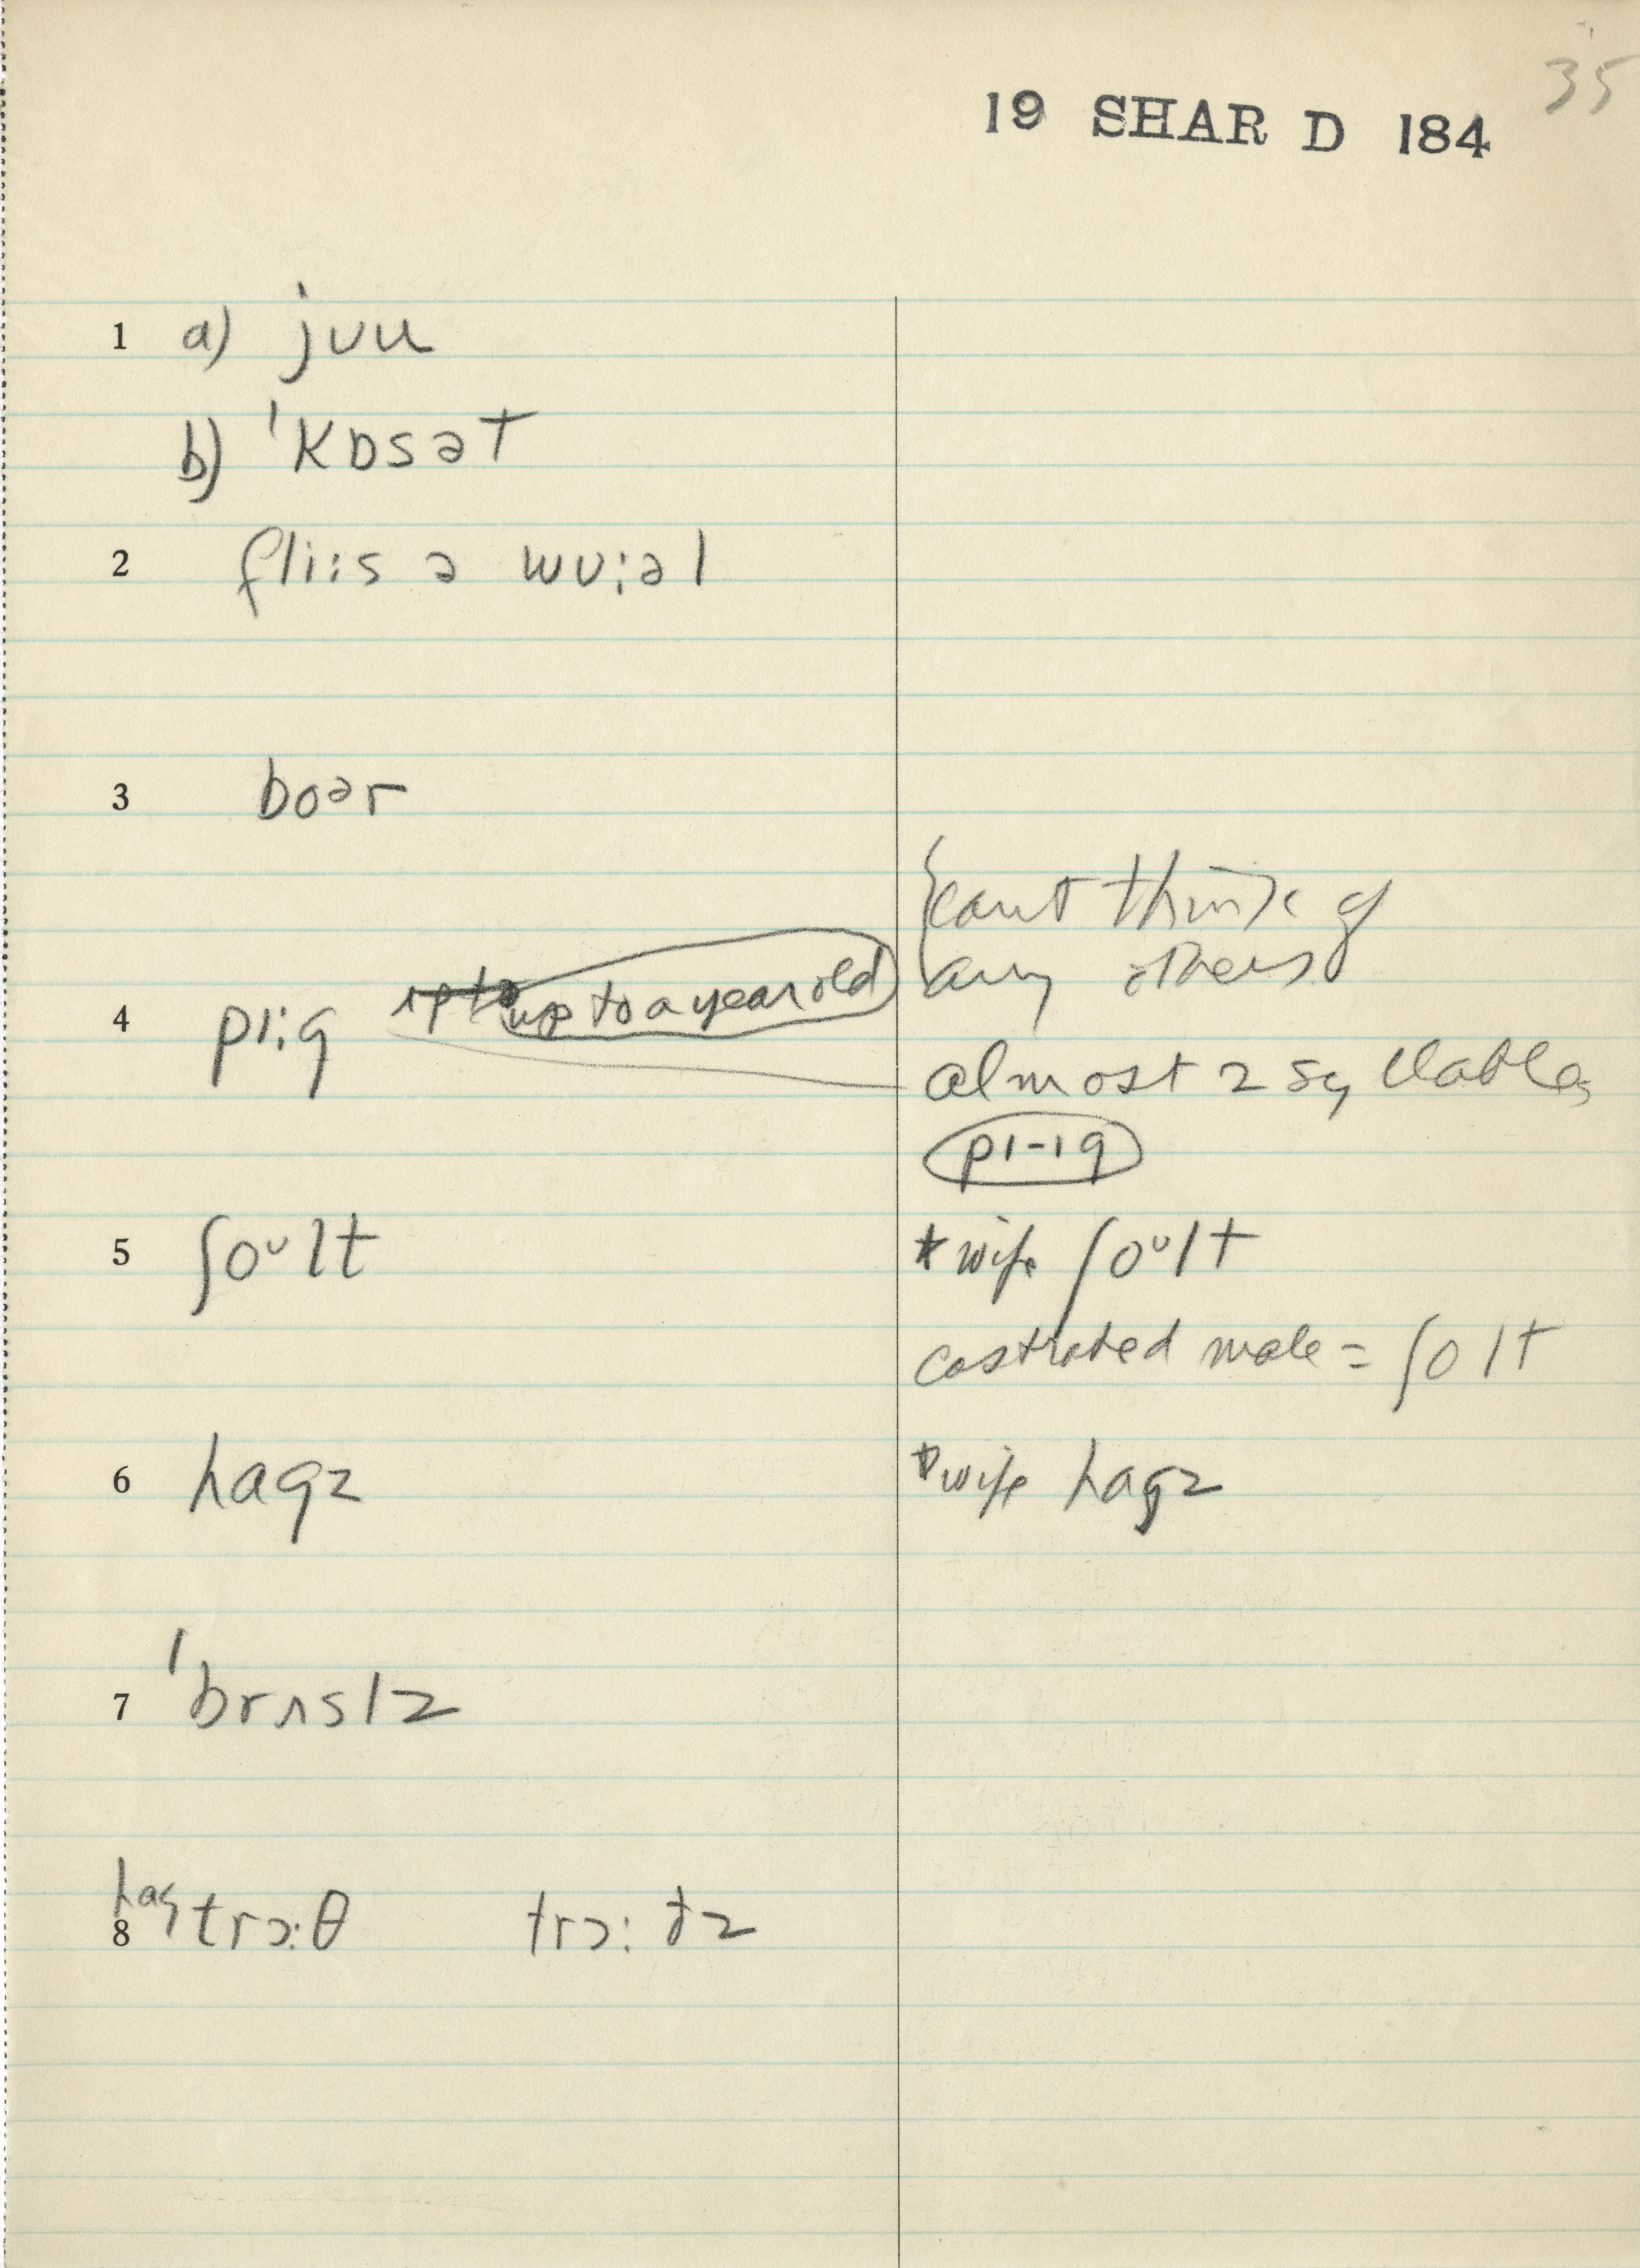 35
19 SHAR D 184
1 a) jʊu
b) ˈkɒsət
2 fliːs ə wʊːəl
3 boər
{cant think of
any others
4 pɪːg ~~up to~~ up to a year old
almost 2 syllables
pɪ-ɪg
5 ʃoᶷlt * wife ʃoᶷlt
castrated male = ʃolt
6 hagz * wife hagz
7 ˈbrʌslz
8 hag trɔːθ trɔːðz